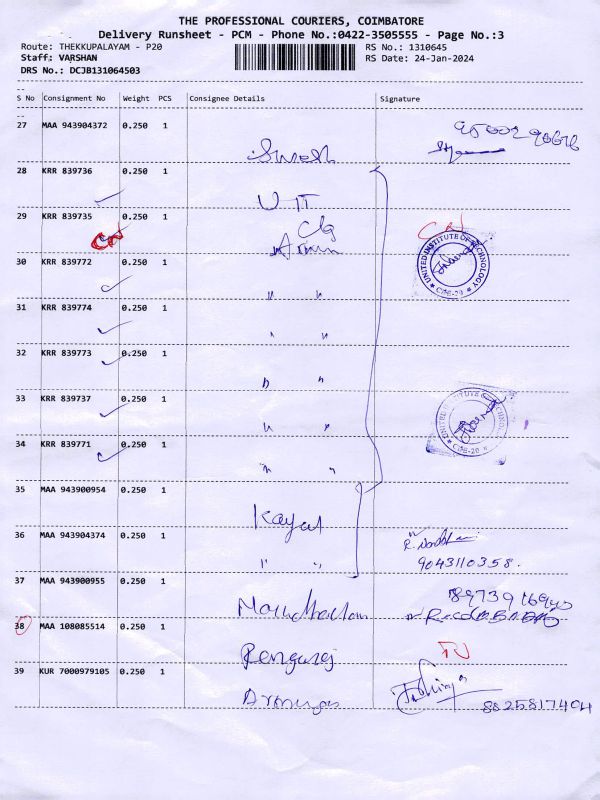 THE PROFESSIONAL COURIERS, COIMBATORE
Delivery Runsheet - PCM - Phone No.:0422-3505555 - Page No.:3
Route: THEKKUPALAYAM - P20 RS No.: 1310645
Staff: VARSHAN RS Date: 24-Jan-2024
DRS No.: DCJB131064503
S No Consignment No Weight PCS Consignee Details Signature
27 MAA 943904372 0.250 1
Suresh
28 KRR 839736 0.250 1
UIT
29 KRR 839735 0.250 1
Clg
UNITED INSTITUTE OF TECHNOLOGY
CBE-20
30 KRR 839772 0.250 1
" "
31 KRR 839774 0.250 1
" "
32 KRR 839773 0.250 1
" "
33 KRR 839737 0.250 1
" "
UNITED INSTITUTE OF TECHNOLOGY
CBE-20
34 KRR 839771 0.250 1
" "
35 MAA 943900954 0.250 1
Kayal
36 MAA 943904374 0.250 1
" "
9043110358.
37 MAA 943900955 0.250 1
38 MAA 108085514 0.250 1
Rengaraj
39 KUR 7000979105 0.250 1
8825817404